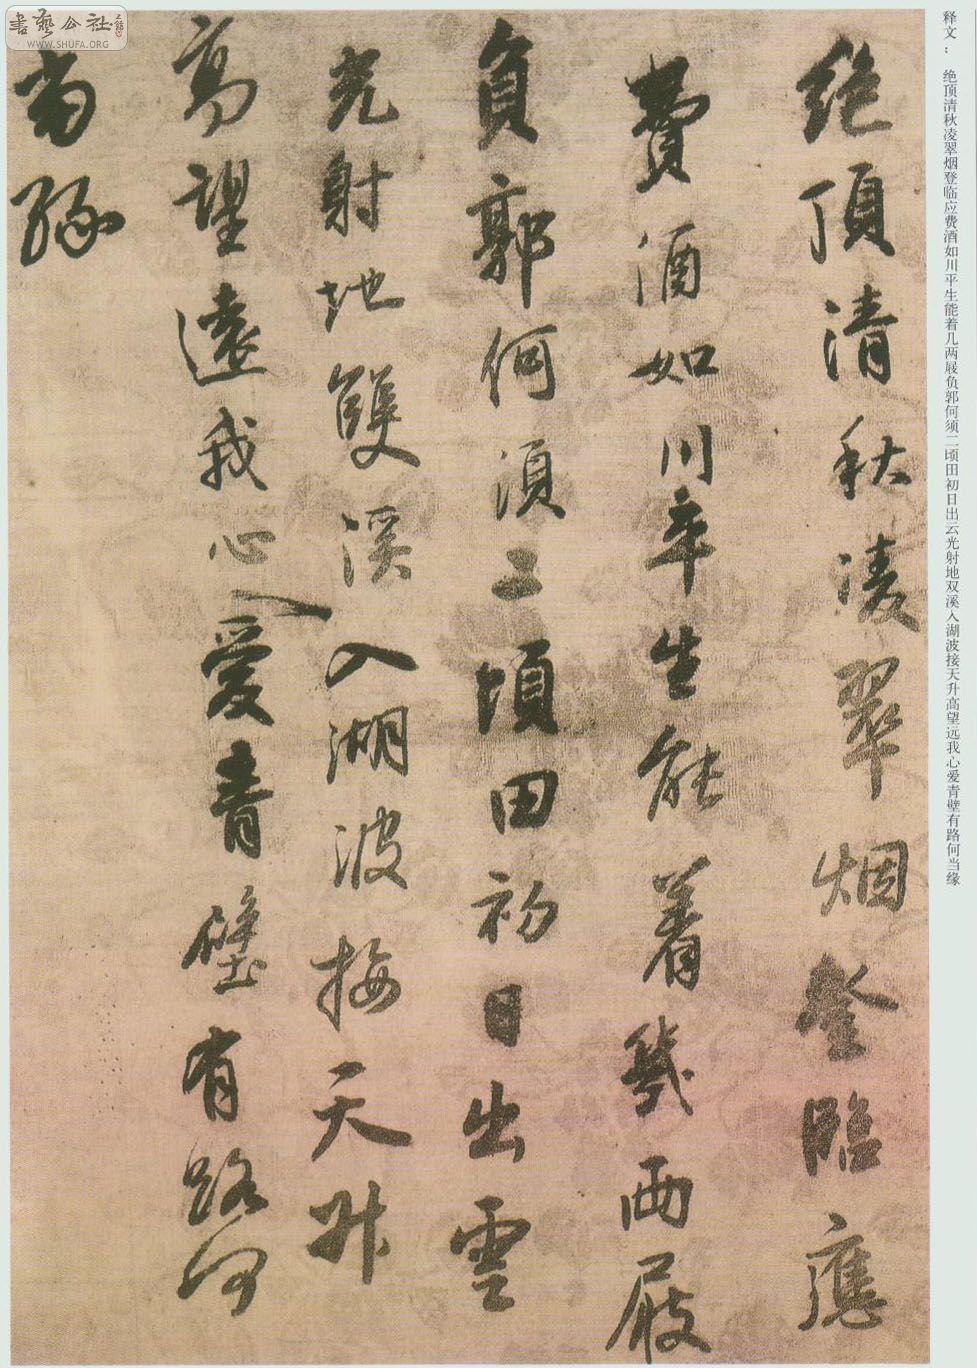 释文： 绝顶清秋凌翠烟登临应费酒如川平生能着几两屐负郭何须二顷田初日出云光射地双溪入湖波接天升高望远我心爱青壁有路何当缘
絶頂清秋凌翠烟登臨應
費酒如川平生能着幾兩屐
負郭何須二頃田初日出雲
光射地雙溪入湖波接天升
高望遠我心愛青壁有路何
當緣
書藝公社
WWW.SHUFA.ORG